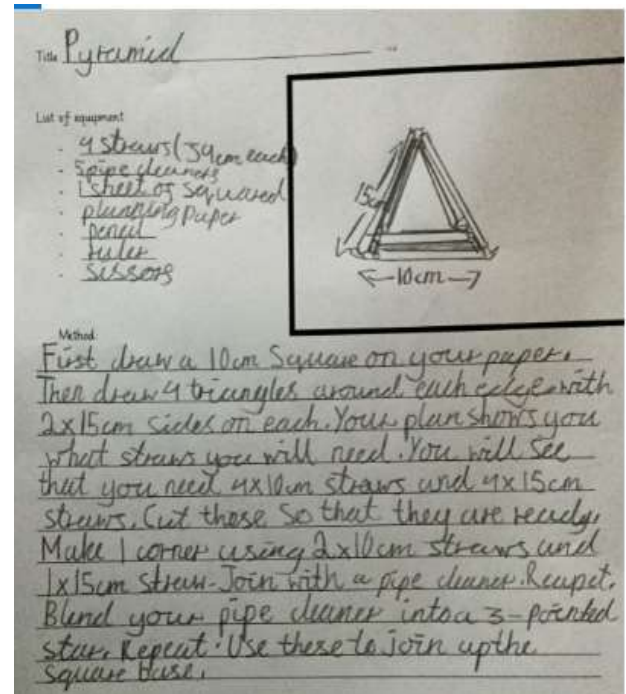 Title Pyramid
List of equipment
4 straws (34cm each)
5 pipe cleaners
1 sheet of squared
planning paper
pencil
ruler
sissors
15cm
10cm
Method:
First draw a 10cm Square on your paper.
Then draw 4 triangles around each edge with
2x15cm sides on each. Your plan shows you
what straws you will need. You will see
that you need 4x10cm straws and 4x15cm
straws. Cut these so that they are ready.
Make 1 corner using 2x10cm straws and
1x15cm straw. Join with a pipe cleaner. Reapet.
Blend your pipe cleaner into a 3-pointed
star. Repeat. Use these to join up the
square base.